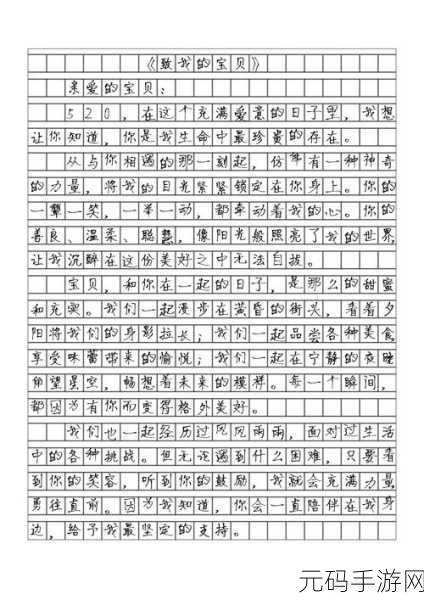 《致我的宝贝》
亲爱的宝贝：
520，在这个充满爱意的日子里，我想
让你知道，你是我生命中最珍贵的存在。
从与你相遇的那一刻起，仿佛有一种神奇
的力量，将我的目光紧紧锁定在你身上。你的
一颦一笑，一举一动，都牵动着我的心。你的
善良、温柔、聪慧，像阳光般照亮了我的世界，
让我沉醉在这份美好之中无法自拔。
宝贝，和你在一起的日子，是那么的甜蜜
和充实。我们一起漫步在黄昏的街头，看着夕
阳将我们的身影拉长；我们一起品尝各种美食，
享受味蕾带来的愉悦；我们一起在宁静的夜晚
仰望星空，畅想着未来的模样。每一个瞬间，
都因为有你而变得格外美好。
我们也一起经历过风风雨雨，面对过生活
中的各种挑战。但无论遇到什么困难，只要看
到你的笑容，听到你的鼓励，我就会充满力量，
勇往直前。因为我知道，你会一直陪伴在我身
边，给予我最坚定的支持。
元码手游网